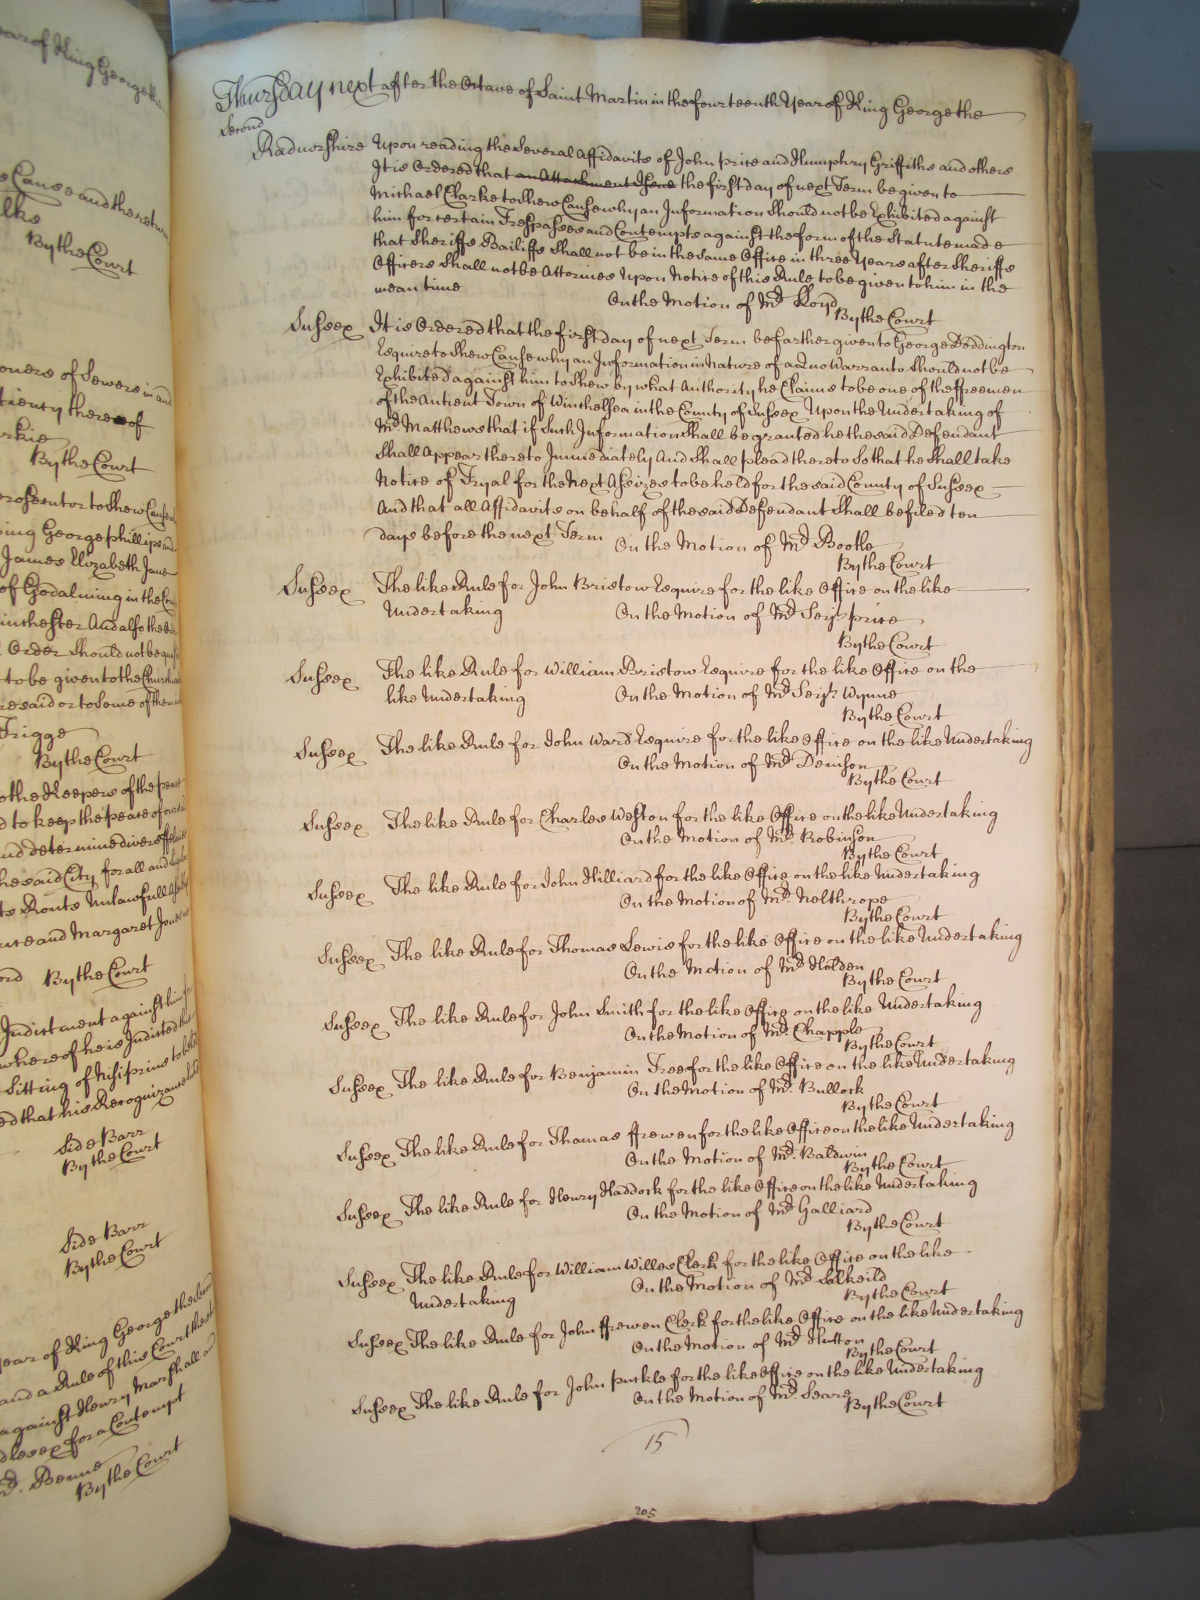 ear of King George the
Cause and the return
By the Court
oners of Sewers in and
thereof
By the Court
rosecutor to shew Cause
ing George phillips and
James Elizabeth Jane
of Godalming in the
inchester And also the
Order Should not be
to be given to the Church
resaid or to Some of them
Trigge
By the Court
the Keepers of the peace
d to keep the peace of
and determine divers
he said City for all and
Routs Unlawfull
and Margaret Jones
ord By the Court
Indictment against him
whereof he is Indicted
Sitting of Nisi prius to be
ed that his Recognizance
Side Barr
By the Court
Side Barr
By the Court
year of King George the
and a Rule of this Court
against Henry Marshall
dlesex for a Contempt
Mr. Benne
By the Court
Thursday next after the Octave of Saint Martin in the fourteenth Year of King George the
Second
Radnorshire Upon reading the Several Affidavits of John price and Humphry Griffiths and others
It is Ordered that an Attachment Issue the first day of next Term be given to
Michael Clarke to Shew Cause why an Information Should not be Exhibited against
him for certain Trespasses and Contempts against the form of the Statute made
that Sheriffs Bailiffs Shall not be in the Same Office in three Years after Sheriffs
Officers Shall not be Attornies Upon Notice of this Rule to be given to him in the
mean time On the Motion of Mr. Lloyd
By the Court
Sussex It is Ordered that the first day of next Term be farther given to George Doddington
Esquire to Shew Cause why an Information in Nature of a Quo Warranto Should not be
Exhibited against him to Shew by what Authority he Claims to be one of the ffreemen
of the Antient Town of Winchelsea in the County of Sussex Upon the Undertaking of
Mr. Matthews that if Such Information Shall be granted he the said Defendant
Shall Appear thereto Immediately And Shall plead thereto So that he Shall take
Notice of Tryal for the Next Assizes to be held for the said County of Sussex
And that all Affidavits on behalf of the said Defendant Shall be filed ten
days before the next Term On the Motion of Mr. Bootle
By the Court
Sussex The like Rule for John Bristow Esquire for the like Office on the like
Undertaking On the Motion of Mr. Serjt. price
By the Court
Sussex The like Rule for William Bristow Esquire for the like Office on the
like Undertaking On the Motion of Mr. Serjt. Wynne
By the Court
Sussex The like Rule for John Ward Esquire for the like Office on the like Undertaking
On the Motion of Mr. Denison
By the Court
Sussex The like Rule for Charles Weston for the like Office on the like Undertaking
On the Motion of Mr. Robinson
By the Court
Sussex The like Rule for John Hilliard for the like Office on the like Undertaking
On the Motion of Mr. Nelthrope
By the Court
Sussex The like Rule for Thomas Lewis for the like Office on the like Undertaking
On the Motion of Mr. Holden
By the Court
Sussex The like Rule for John Smith for the like Office on the like Undertaking
On the Motion of Mr. Chapple
By the Court
Sussex The like Rule for Benjamin Tree for the like Office on the like Undertaking
On the Motion of Mr. Bullock
By the Court
Sussex The like Rule for Thomas ffrewen for the like Office on the like Undertaking
On the Motion of Mr. Baldwin
By the Court
Sussex The like Rule for Henry Haddock for the like Office on the like Undertaking
On the Motion of Mr. Galliard
By the Court
Sussex The like Rule for William Willes Clerk for the like Office on the like
Undertaking On the Motion of Mr. Salkeild
By the Court
Sussex The like Rule for John ffrewen Clerk for the like Office on the like Undertaking
On the Motion of Mr. Hutton
By the Court
Sussex The like Rule for John puckle for the like Office on the like Undertaking
On the Motion of Mr. Seare
By the Court
15
205